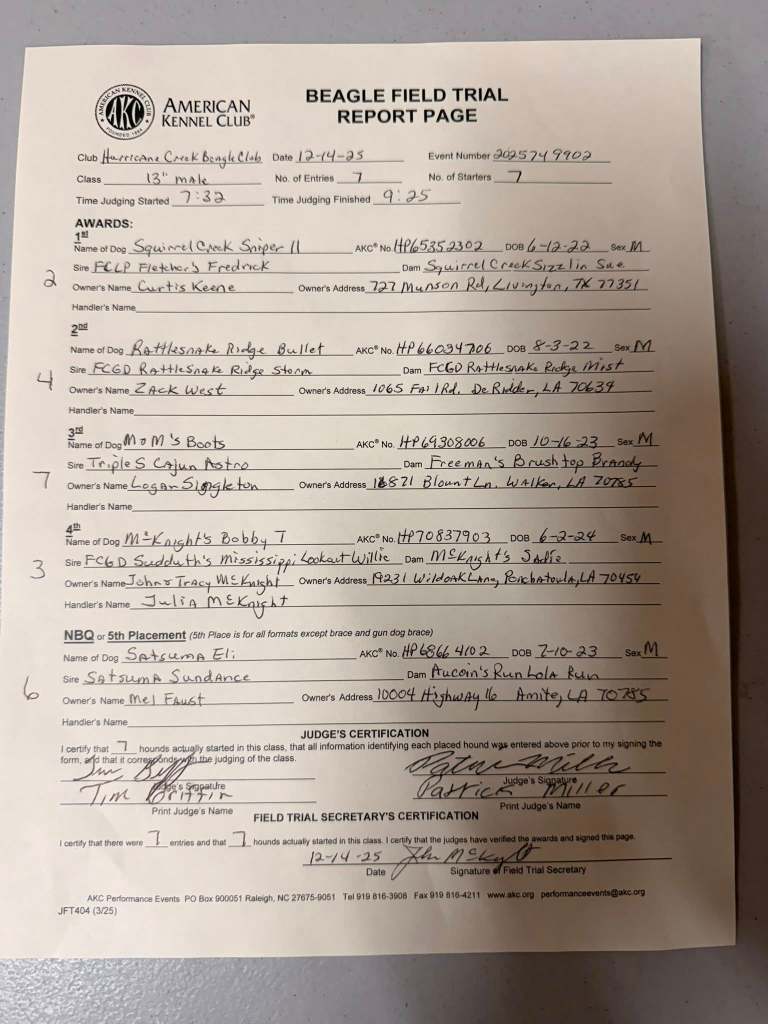 AMERICAN KENNEL CLUB®
AMERICAN KENNEL CLUB
AKC
FOUNDED 1884
BEAGLE FIELD TRIAL
REPORT PAGE
Club Hurricane Creek Beagle Club Date 12-14-25 Event Number 2025749902
Class 13" male No. of Entries 7 No. of Starters 7
Time Judging Started 7:32 Time Judging Finished 9:25
AWARDS:
1st
Name of Dog Squirrel Creek Sniper II AKC® No. HP65352302 DOB 6-12-22 Sex M
Sire FCLP Fletcher's Fredrick Dam Squirrel Creek Sizzlin Sue
2 Owner's Name Curtis Keene Owner's Address 727 Munson Rd, Livingston, TX 77351
Handler's Name
2nd
Name of Dog Rattlesnake Ridge Bullet AKC® No. HP66034706 DOB 8-3-22 Sex M
Sire FCGD Rattlesnake Ridge Storm Dam FCGD Rattlesnake Ridge Mist
4 Owner's Name Zack West Owner's Address 1065 Rd. DeRidder, LA 70634
Handler's Name
3rd
Name of Dog MoM's Boots AKC® No. HP69308006 DOB 10-16-23 Sex M
Sire Triple S Cajun Astro Dam Freeman's Brushtop Brandy
7 Owner's Name Logan Singleton Owner's Address Blount Ln. Walker, LA 70785
Handler's Name
4th
Name of Dog McKnight's Bobby T AKC® No. HP70837903 DOB 6-2-24 Sex M
Sire FCGD Sudduth's Mississippi Lookout Willie Dam McKnight's Sadie
3 Owner's Name John & Tracy McKnight Owner's Address 19231 Wildoak Lane, Ponchatoula, LA 70454
Handler's Name Julia McKnight
NBQ or 5th Placement (5th Place is for all formats except brace and gun dog brace)
Name of Dog Satsuma Eli AKC® No. HP68664102 DOB 7-10-23 Sex M
Sire Satsuma Sundance Dam Aucoin's Run Lola Run
6 Owner's Name Mel Faust Owner's Address 10004 Highway 16 Amite, LA 70785
Handler's Name
JUDGE'S CERTIFICATION
I certify that 7 hounds actually started in this class, that all information identifying each placed hound was entered above prior to my signing the
form, and that it corresponds with the judging of the class.
Judge's Signature Patrick Miller Judge's Signature
Tim Griffin Patrick Miller
Print Judge's Name Print Judge's Name
FIELD TRIAL SECRETARY'S CERTIFICATION
I certify that there were 7 entries and that 7 hounds actually started in this class. I certify that the judges have verified the awards and signed this page.
12-14-25 John McKnight
Date Signature of Field Trial Secretary
AKC Performance Events PO Box 900051 Raleigh, NC 27675-9051 Tel 919 816-3908 Fax 919 816-4211 www.akc.org performanceevents@akc.org
JFT404 (3/25)